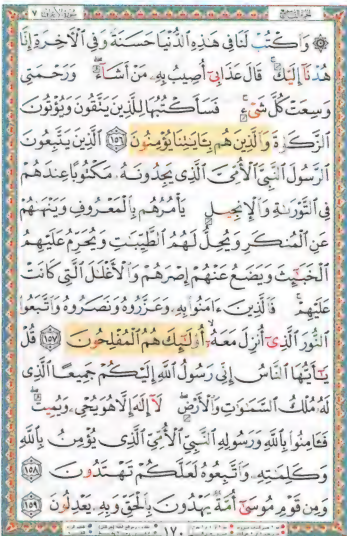 الجزء التاسع
سورة الأعراف ٧
۞ وَٱكۡتُبۡ لَنَا فِي هَٰذِهِ ٱلدُّنۡيَا حَسَنَةٗ وَفِي ٱلۡأٓخِرَةِ إِنَّا
هُدۡنَآ إِلَيۡكَۚ قَالَ عَذَابِيٓ أُصِيبُ بِهِۦ مَنۡ أَشَآءُۖ وَرَحۡمَتِي
وَسِعَتۡ كُلَّ شَيۡءٖۚ فَسَأَكۡتُبُهَا لِلَّذِينَ يَتَّقُونَ وَيُؤۡتُونَ
ٱلزَّكَوٰةَ وَٱلَّذِينَ هُم بِـَٔايَٰتِنَا يُؤۡمِنُونَ ١٥٦ ٱلَّذِينَ يَتَّبِعُونَ
ٱلرَّسُولَ ٱلنَّبِيَّ ٱلۡأُمِّيَّ ٱلَّذِي يَجِدُونَهُۥ مَكۡتُوبًا عِندَهُمۡ
فِي ٱلتَّوۡرَىٰةِ وَٱلۡإِنجِيلِ يَأۡمُرُهُم بِٱلۡمَعۡرُوفِ وَيَنۡهَىٰهُمۡ
عَنِ ٱلۡمُنكَرِ وَيُحِلُّ لَهُمُ ٱلطَّيِّبَٰتِ وَيُحَرِّمُ عَلَيۡهِمُ
ٱلۡخَبَٰٓئِثَ وَيَضَعُ عَنۡهُمۡ إِصۡرَهُمۡ وَٱلۡأَغۡلَٰلَ ٱلَّتِي كَانَتۡ
عَلَيۡهِمۡۚ فَٱلَّذِينَ ءَامَنُواْ بِهِۦ وَعَزَّرُوهُ وَنَصَرُوهُ وَٱتَّبَعُواْ
ٱلنُّورَ ٱلَّذِيٓ أُنزِلَ مَعَهُۥٓ أُوْلَٰٓئِكَ هُمُ ٱلۡمُفۡلِحُونَ ١٥٧ قُلۡ
يَٰٓأَيُّهَا ٱلنَّاسُ إِنِّي رَسُولُ ٱللَّهِ إِلَيۡكُمۡ جَمِيعًا ٱلَّذِي
لَهُۥ مُلۡكُ ٱلسَّمَٰوَٰتِ وَٱلۡأَرۡضِۖ لَآ إِلَٰهَ إِلَّا هُوَ يُحۡيِۦ وَيُمِيتُۖ
فَـَٔامِنُواْ بِٱللَّهِ وَرَسُولِهِ ٱلنَّبِيِّ ٱلۡأُمِّيِّ ٱلَّذِي يُؤۡمِنُ بِٱللَّهِ
وَكَلِمَٰتِهِۦ وَٱتَّبِعُوهُ لَعَلَّكُمۡ تَهۡتَدُونَ ١٥٨
وَمِن قَوۡمِ مُوسَىٰٓ أُمَّةٞ يَهۡدُونَ بِٱلۡحَقِّ وَبِهِۦ يَعۡدِلُونَ ١٥٩
١٧٠